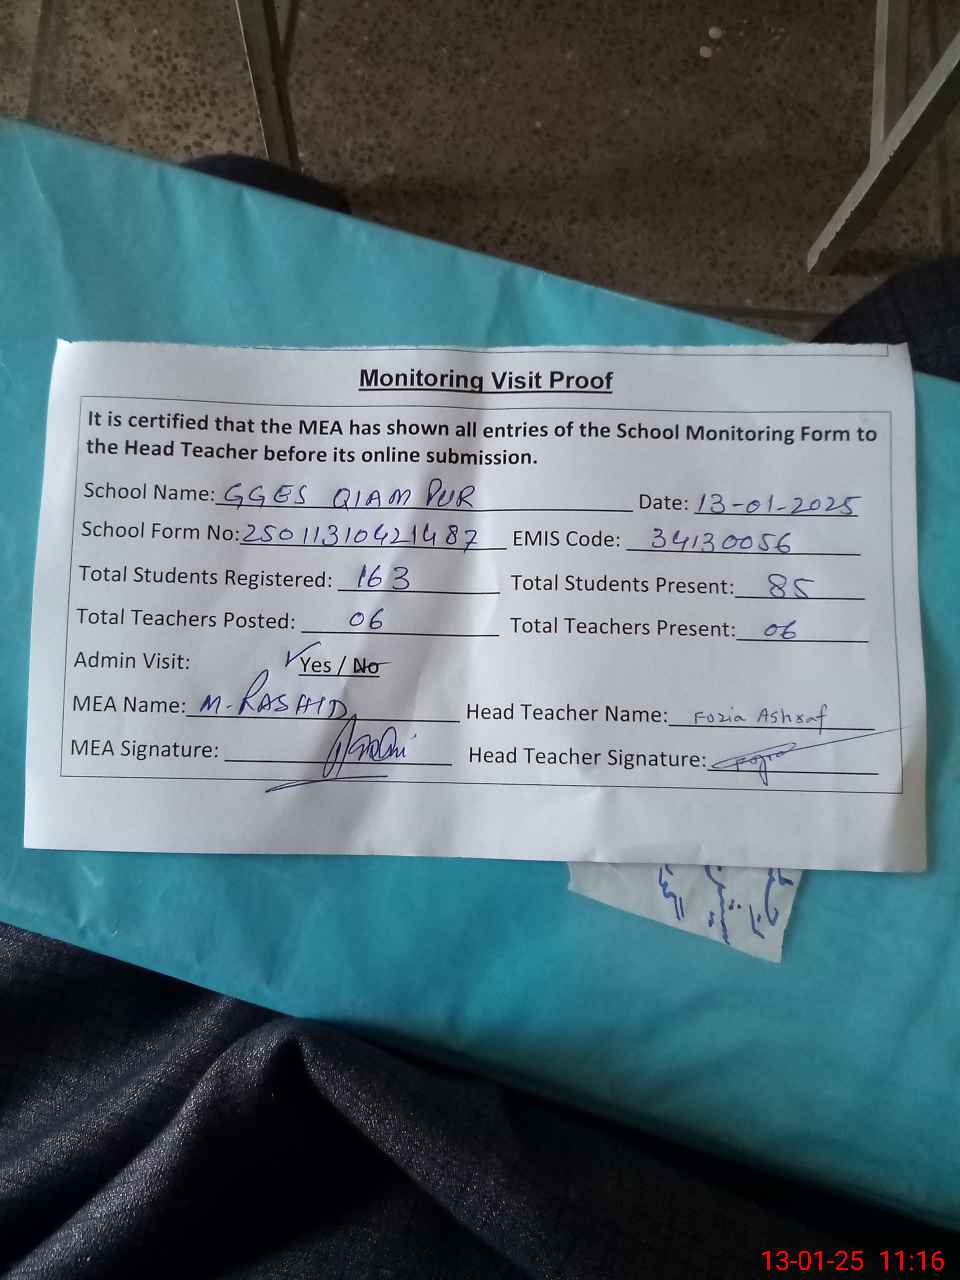 Monitoring Visit Proof
It is certified that the MEA has shown all entries of the School Monitoring Form to
the Head Teacher before its online submission.
School Name: GGES QIAM PUR Date: 13-01-2025
School Form No: 25011310421487 EMIS Code: 34130056
Total Students Registered: 163 Total Students Present: 85
Total Teachers Posted: 06 Total Teachers Present: 06
Admin Visit: Yes / No
MEA Name: M. RASHID Head Teacher Name: Fozia Ashraf
MEA Signature: Head Teacher Signature: Fozia
13-01-25 11:16